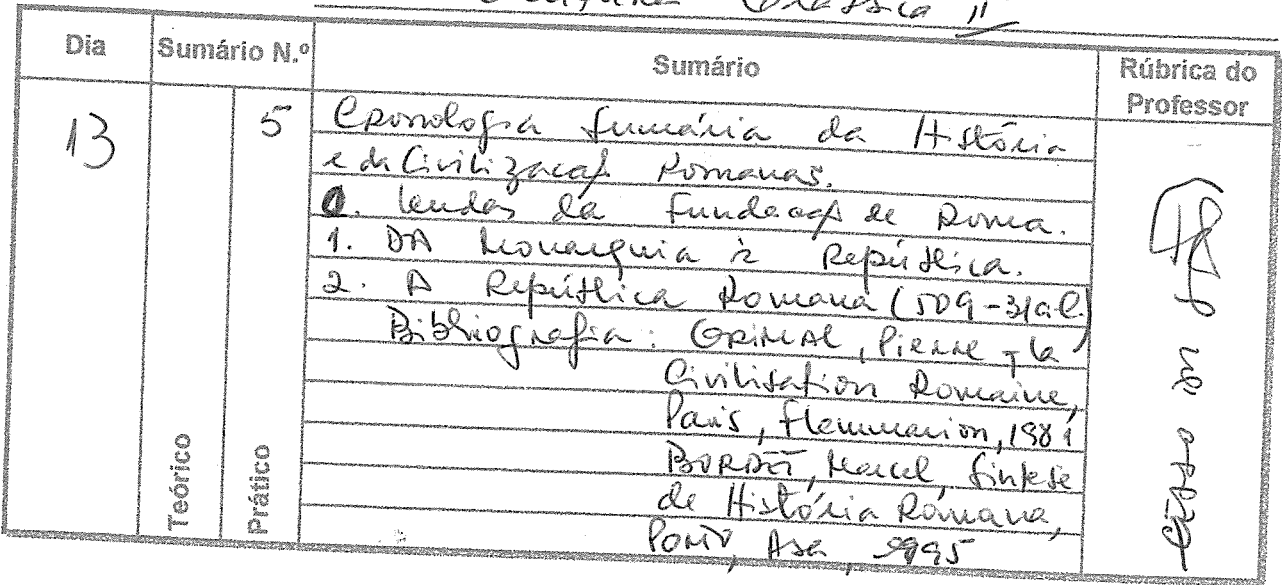 Clássica II
Dia
Sumário N.º
Sumário
Rúbrica do
Professor
13
5
Cronologia sumária da História
e da Civilização Romanas.
0. Lendas da Fundação de Roma.
1. DA Monarquia à República.
2. A República Romana (509-31 a.C.)
Bibliografia: GRIMAL, Pierre, La
Civilisation Romaine,
Paris, Flammarion, 1981
BORDET, Marcel, Síntese
de História Romana,
Porto, Asa, 1995
Teórico
Prático